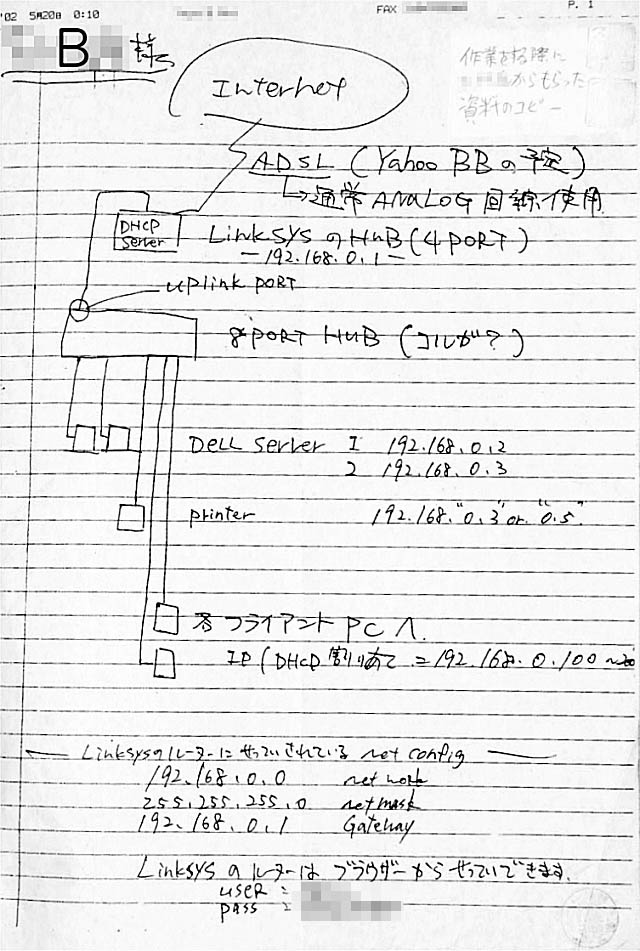 '02 5月20日 0:10 FAX P. 1
B 様
作業をする際に
からもらった
資料のコピー
Internet
ADSL (Yahoo BBの予定)
通常ANALOG回線使用
DHCP
Server
LinksysのHUB(4PORT)
192.168.0.1
uplink PORT
8PORT HUB (コレガ?)
DELL Server 1 192.168.0.2
2 192.168.0.3
printer 192.168."0.3" or "0.5"
各クライアントPCへ.
IP (DHCP 割りあて = 192.168.0.100 ~
Linksysのルーターにせっていされている net config
192.168.0.0 net work
255.255.255.0 netmask
192.168.0.1 Gateway
Linksysのルーターはブラウザーからせっていできます.
user =
pass =